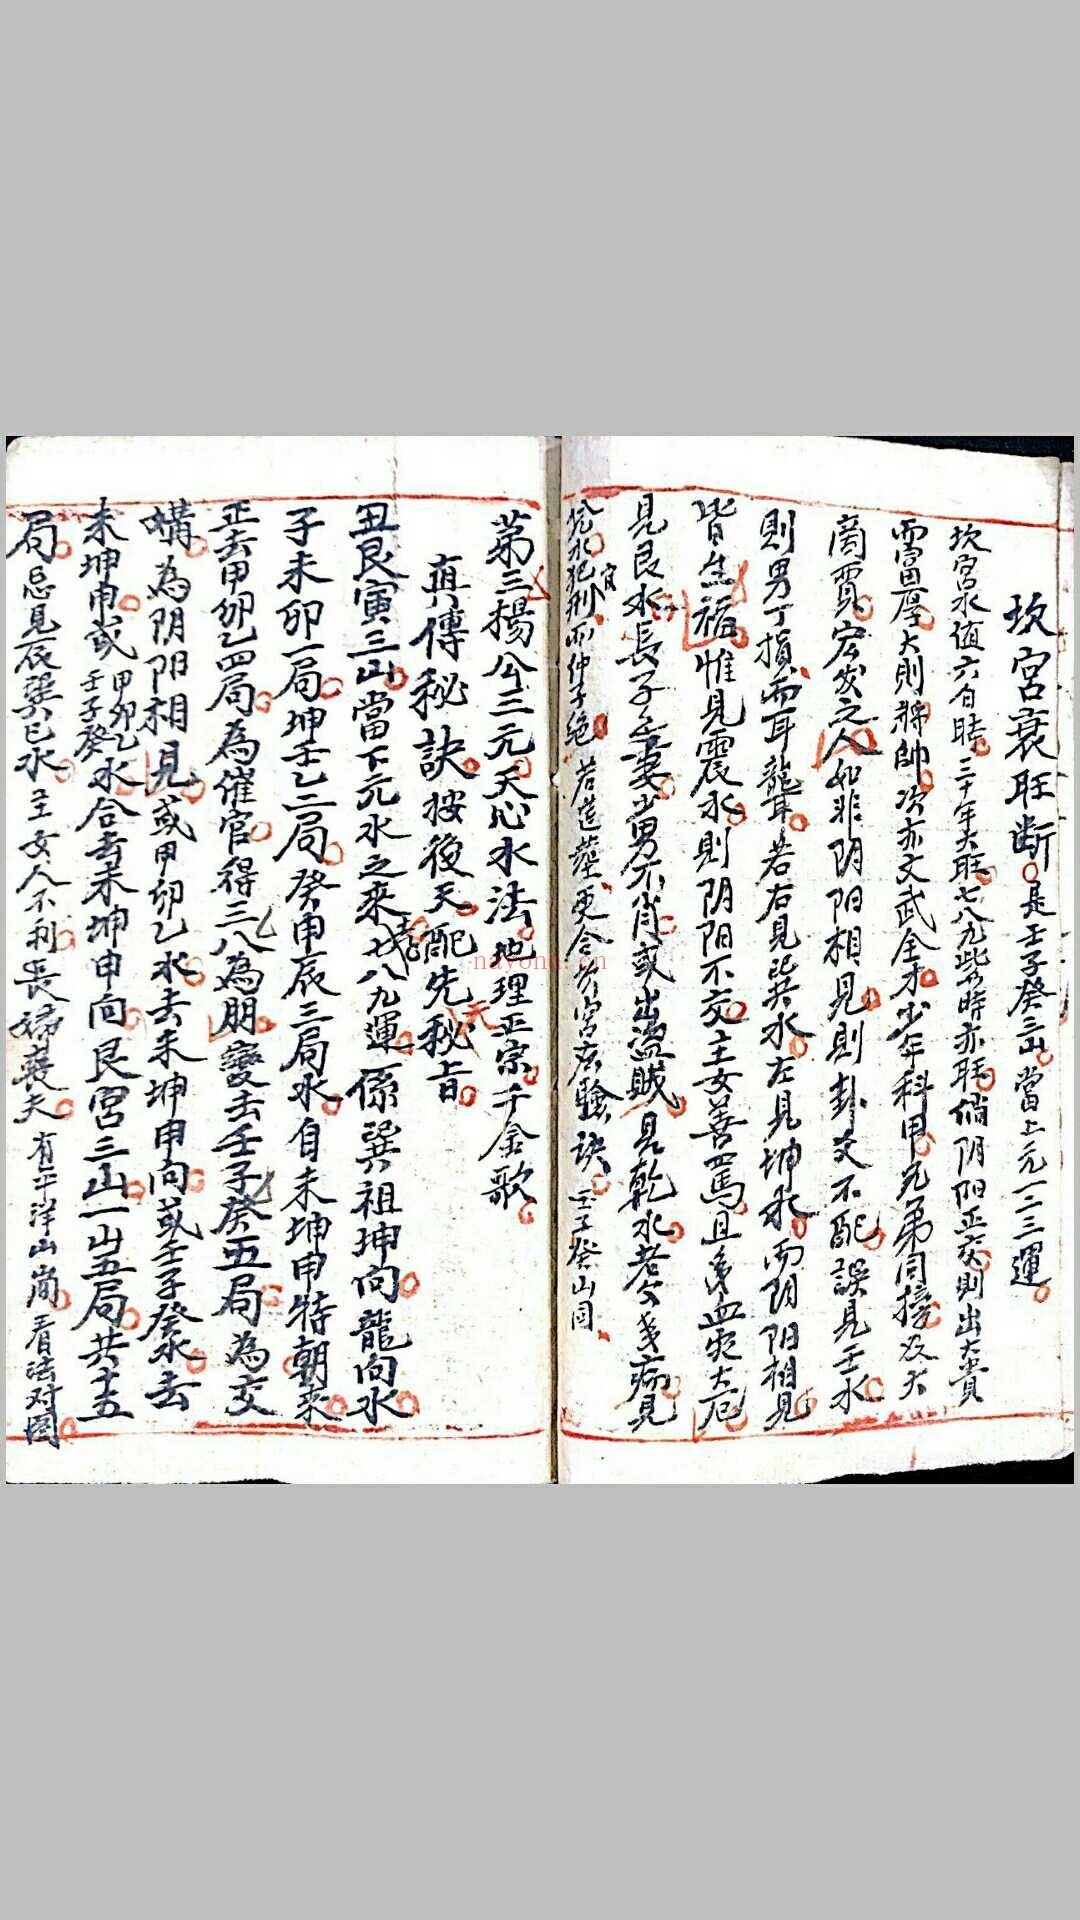 坎宮衰旺断是壬子癸三山當上元一二三運
坎宮水值六白時三十年大旺七八九皆時亦旺倘阴阳正交則出大貴
而富厚大則將帥次亦文武全才少年科甲兄弟同接及大
商賈宏发之人如非阴阳相見則卦爻不配誤見壬水
則男丁損而耳聾若右見巽水左見坤水而阴阳相見
皆無福惟見震水則阴阳不交主女善罵且
見艮水長子妻男不肖或出盜賊見乾水老父病見
兌水犯刑官而仲子絶若造葬更合訣壬子癸山同
第三楊公三元天心水法地理正宗千金歌
真傳秘訣按後天配先天秘旨
丑艮寅三山當下元水之來七八九運係巽祖坤向龍向水
子未卯一局坤壬乙二局癸申辰三局水自未坤申特朝來
丑去甲卯乙四局為催官得三八為朋變去壬子癸五局為交
媾為阴阳相見或甲卯乙水去未坤申向或壬子癸水去
未坤申或甲卯乙壬子癸水合去未坤申向艮宮三山一山五局共十五
局忌見辰巽巳水主女人不利長婦喪夫有平洋山崗看法对圖
nayona.cn